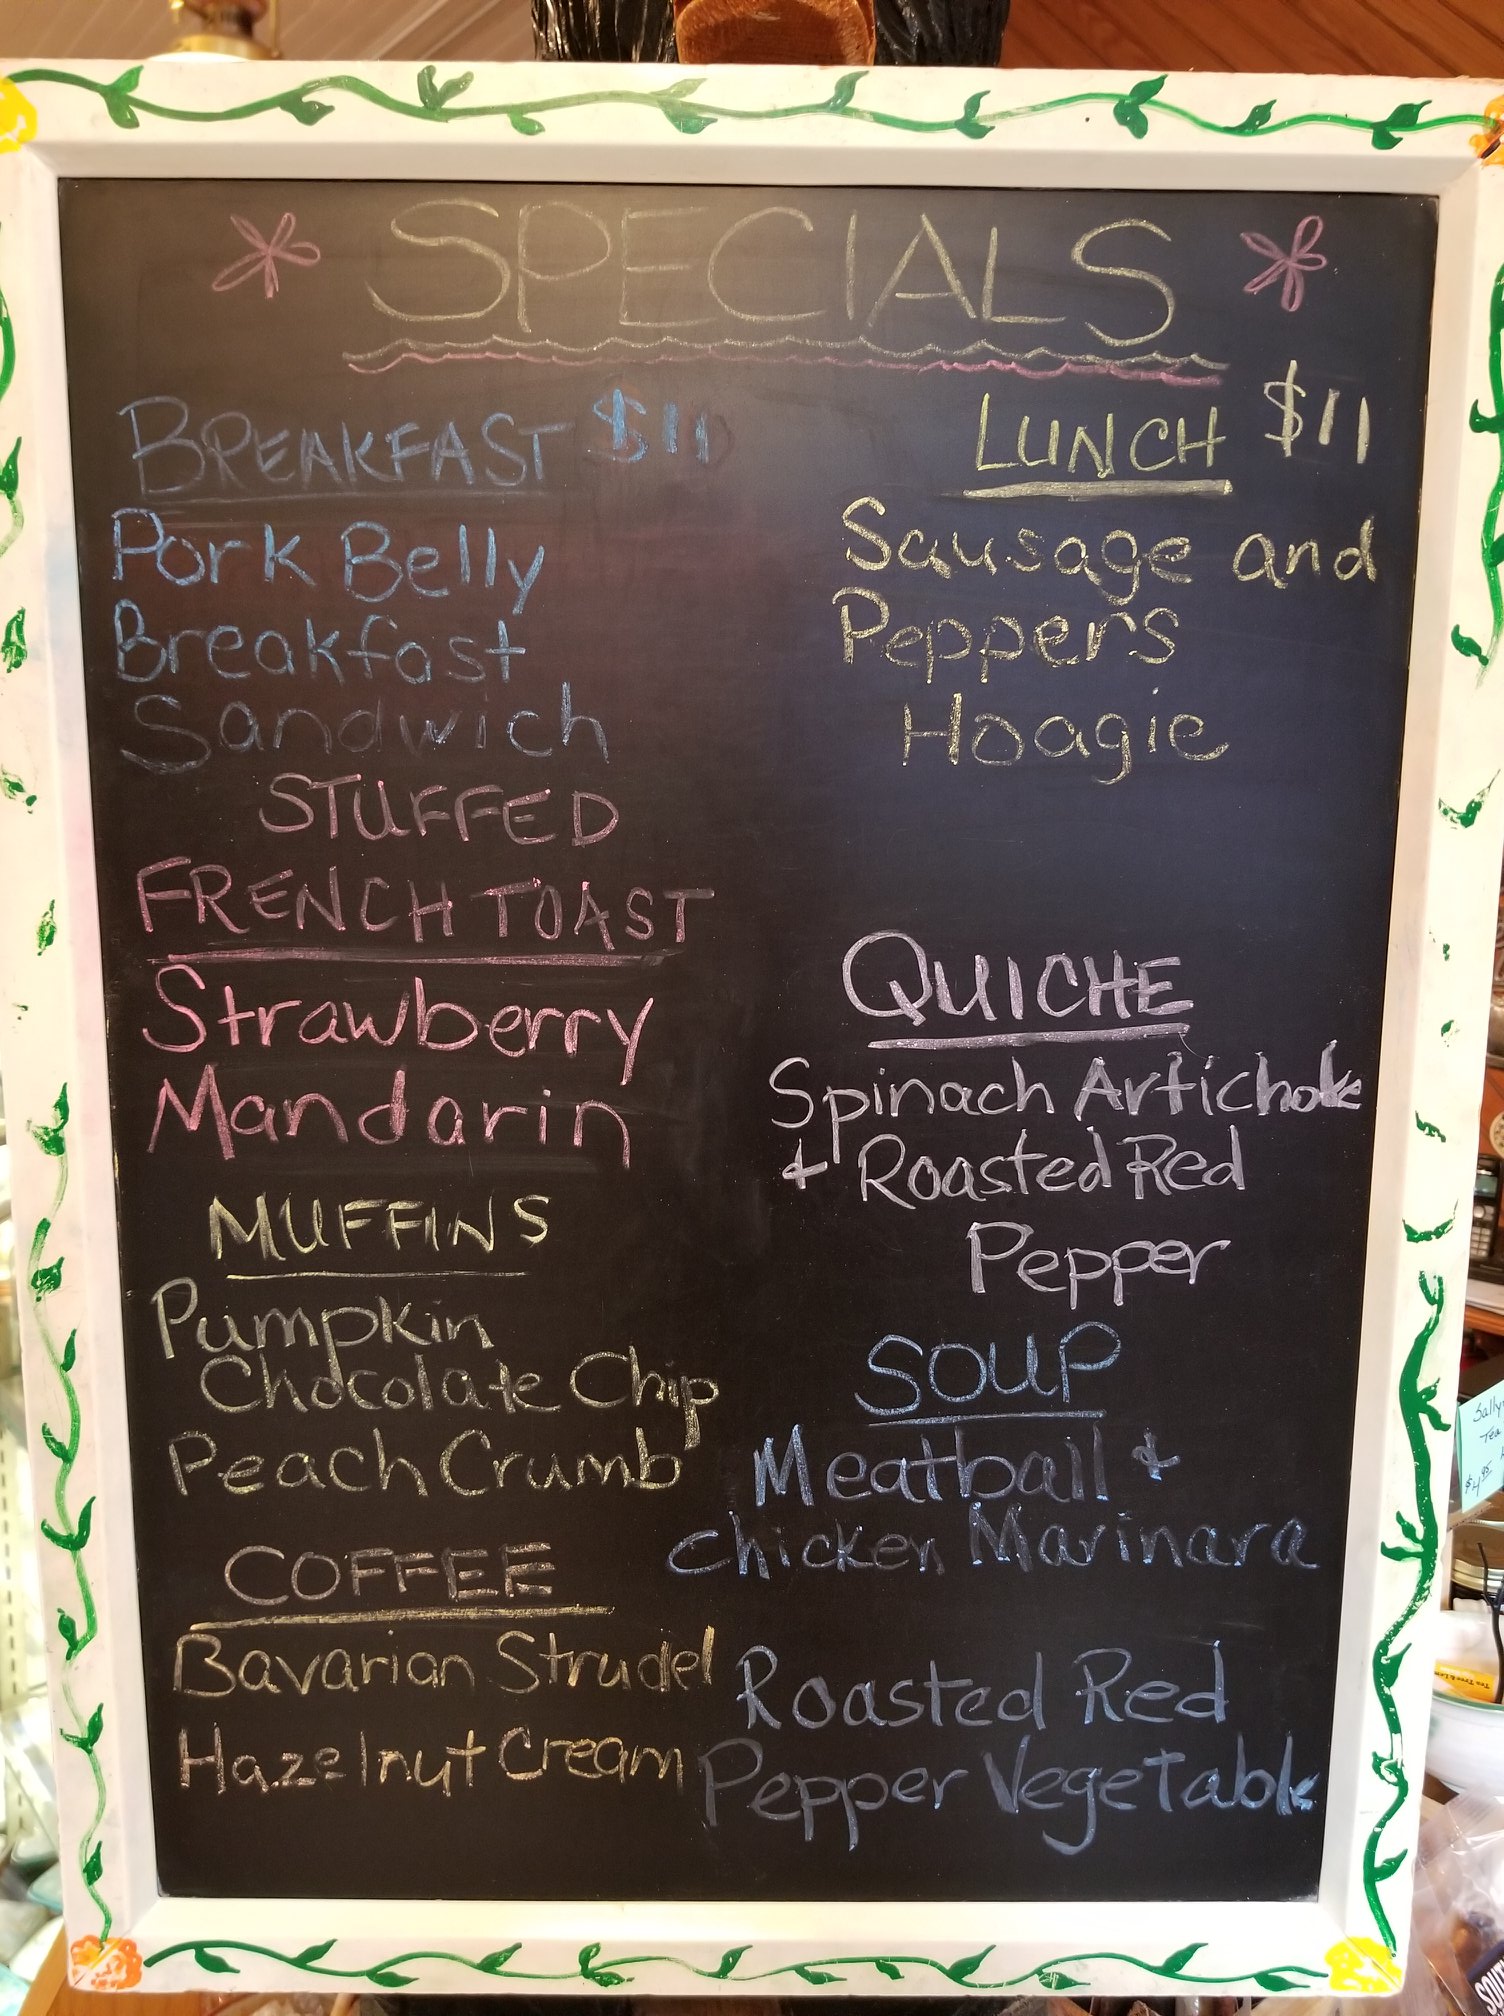 SPECIALS
BREAKFAST $11
Pork Belly
Breakfast
Sandwich
STUFFED
FRENCH TOAST
Strawberry
Mandarin
MUFFINS
Pumpkin
Chocolate Chip
Peach Crumb
COFFEE
Bavarian Strudel
Hazelnut Cream
LUNCH $11
Sausage and
Peppers
Hoagie
QUICHE
Spinach Artichoke
+ Roasted Red
Pepper
SOUP
Meatball +
Chicken Marinara
Roasted Red
Pepper Vegetable
Sally
Tea
$4.95